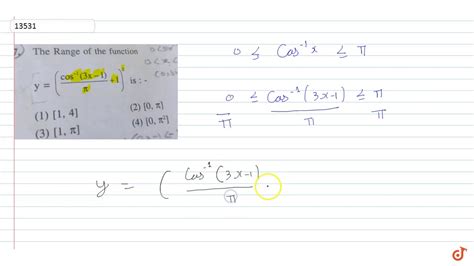 13531
The Range of the function
y = ( cos⁻¹(3x−1) / π + 1 )² is : -
(1) [1, 4]
(2) [0, π]
(3) [1, π]
(4) [0, π²]
0 ≤ Cos⁻¹x ≤ π
0/π ≤ Cos⁻¹(3x-1)/π ≤ π/π
y = ( Cos⁻¹(3x-1)/π